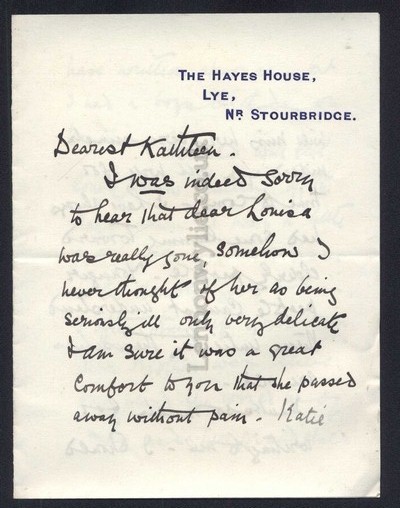 THE HAYES HOUSE,
LYE,
NR STOURBRIDGE.
Dearest Kathleen.
I was indeed sorry
to hear that dear Louisa
was really gone, somehow I
never thought of her as being
seriously ill only very delicate
I am sure it was a great
comfort to you that she passed
away without pain. Katie